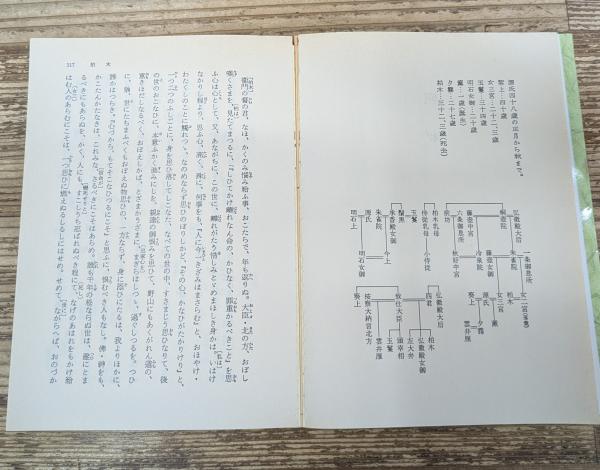 源氏四十八歳の正月から秋まで。
紫上:四十歳
女三宮:二十二、三歳
薫:一歳(誕生)
玉鬘:三十四歳
夕霧:二十七歳
柏木:三十二、三歳(死去)
弘徽殿大后
朱雀院
桐壺院
藤壺中宮
冷泉院
六条御息所
秋好中宮
柏木乳母
小侍従
玉鬘
源氏
明石上
明石女御
今上
一条御息所
女二宮(落葉)
柏木
女三宮
薫
源氏
葵上
夕霧
雲井雁
弘徽殿大后
四君
柏木
弘徽殿女御
左大弁
頭宰相
致仕大臣
玉鬘
按察大納言北方
雲井雁
葵上
柏木
317
衛門の督の君、なほ、かくのみ悩み給ふ事、おこたらで、年も返りぬ。大臣・北の方、おぼし
嘆くさまを、見たてまつるに、「しひてかけ離れなん命の、かひなく、罪重かるべきこと」を思
ふ心は心として、又、あながちに、この世に、離れがたう惜しみとゞめまほしき身かは。いはけ
なかりし程より、思ふ心、高く、殊に、何事をも、「人に今一きざみはまさらむ」と、おほやけ・
わたくしのことに触れつゝ、なのめならず思ひのぼりしかど、「その心、かなひがたかりけり」と、
一つ二つのふしごとに、身を思ひ落してしこなた、なべての世の中、すさまじう思ひなりて、後
の世のおこなひに、本意ふかく進みにしを、親達の御恨みを思ひて、野山にもあくがれん道の、
重きほだしなるべく、おぼえしかば、とざまかうざまに、まぎらはしつゝ、過ぐしつるを。つひ
に、猶、世にたちまふべくもおぼえぬ物思ひの、一方ならず、身に添ひにたるは、我よりほかに、
誰かはつらき。「心づから、もてそこなひつるにこそ」と思ふに、恨むべき人もなし。佛・神をも、
かこたんかたなきは、これみな、さるべきにこそはあらめ。誰も千年の松ならぬ世は、遂にとま
るべきにもあらぬを、かく、人にも、すこしうち忍ばれぬべき程にて、なげのあはれをもかけ給
はむ人あらむにこそは、「一つ思ひに燃えぬるしるしにはせめ。せめて、ながらへば、おのづか